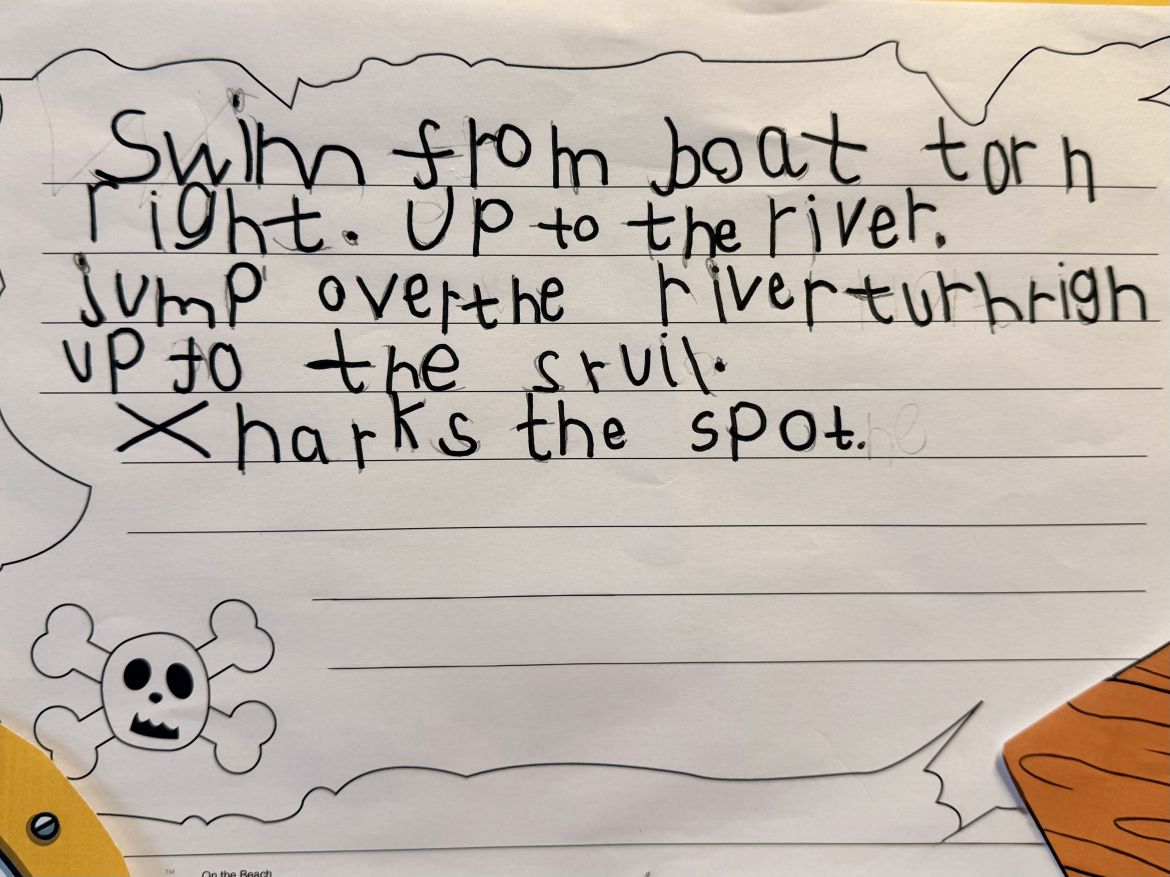 Swim from boat torn
right. Up to the river.
jump over the river turn righ
up to the sruil.
X harks the spot.
On the Beach